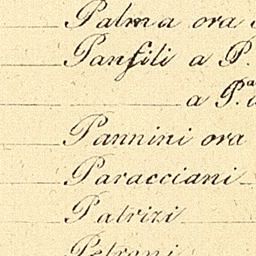 Palma ora
Panfili a P.
a P.ª
Pannini ora
Paracciani
Patrizi
Petroni